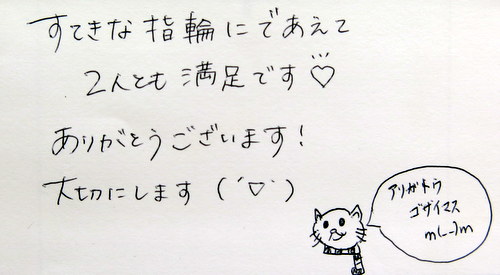 すてきな指輪にであえて
2人とも満足です♡
ありがとうございます!
大切にします(´♡`)
アリガトウ
ゴザイマス
m(_ _)m